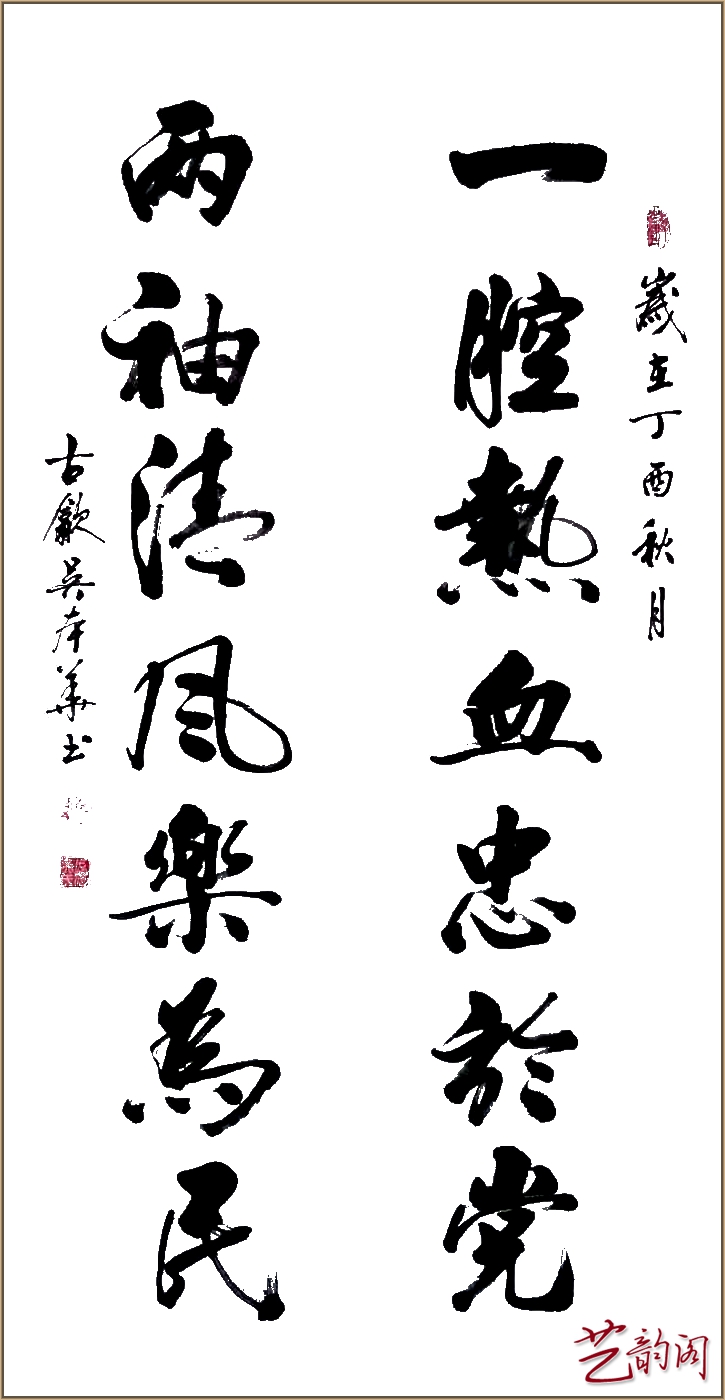 歲在丁酉秋月
一腔熱血忠於党
两袖清风樂為民
古歙吴本華书
艺韵阁